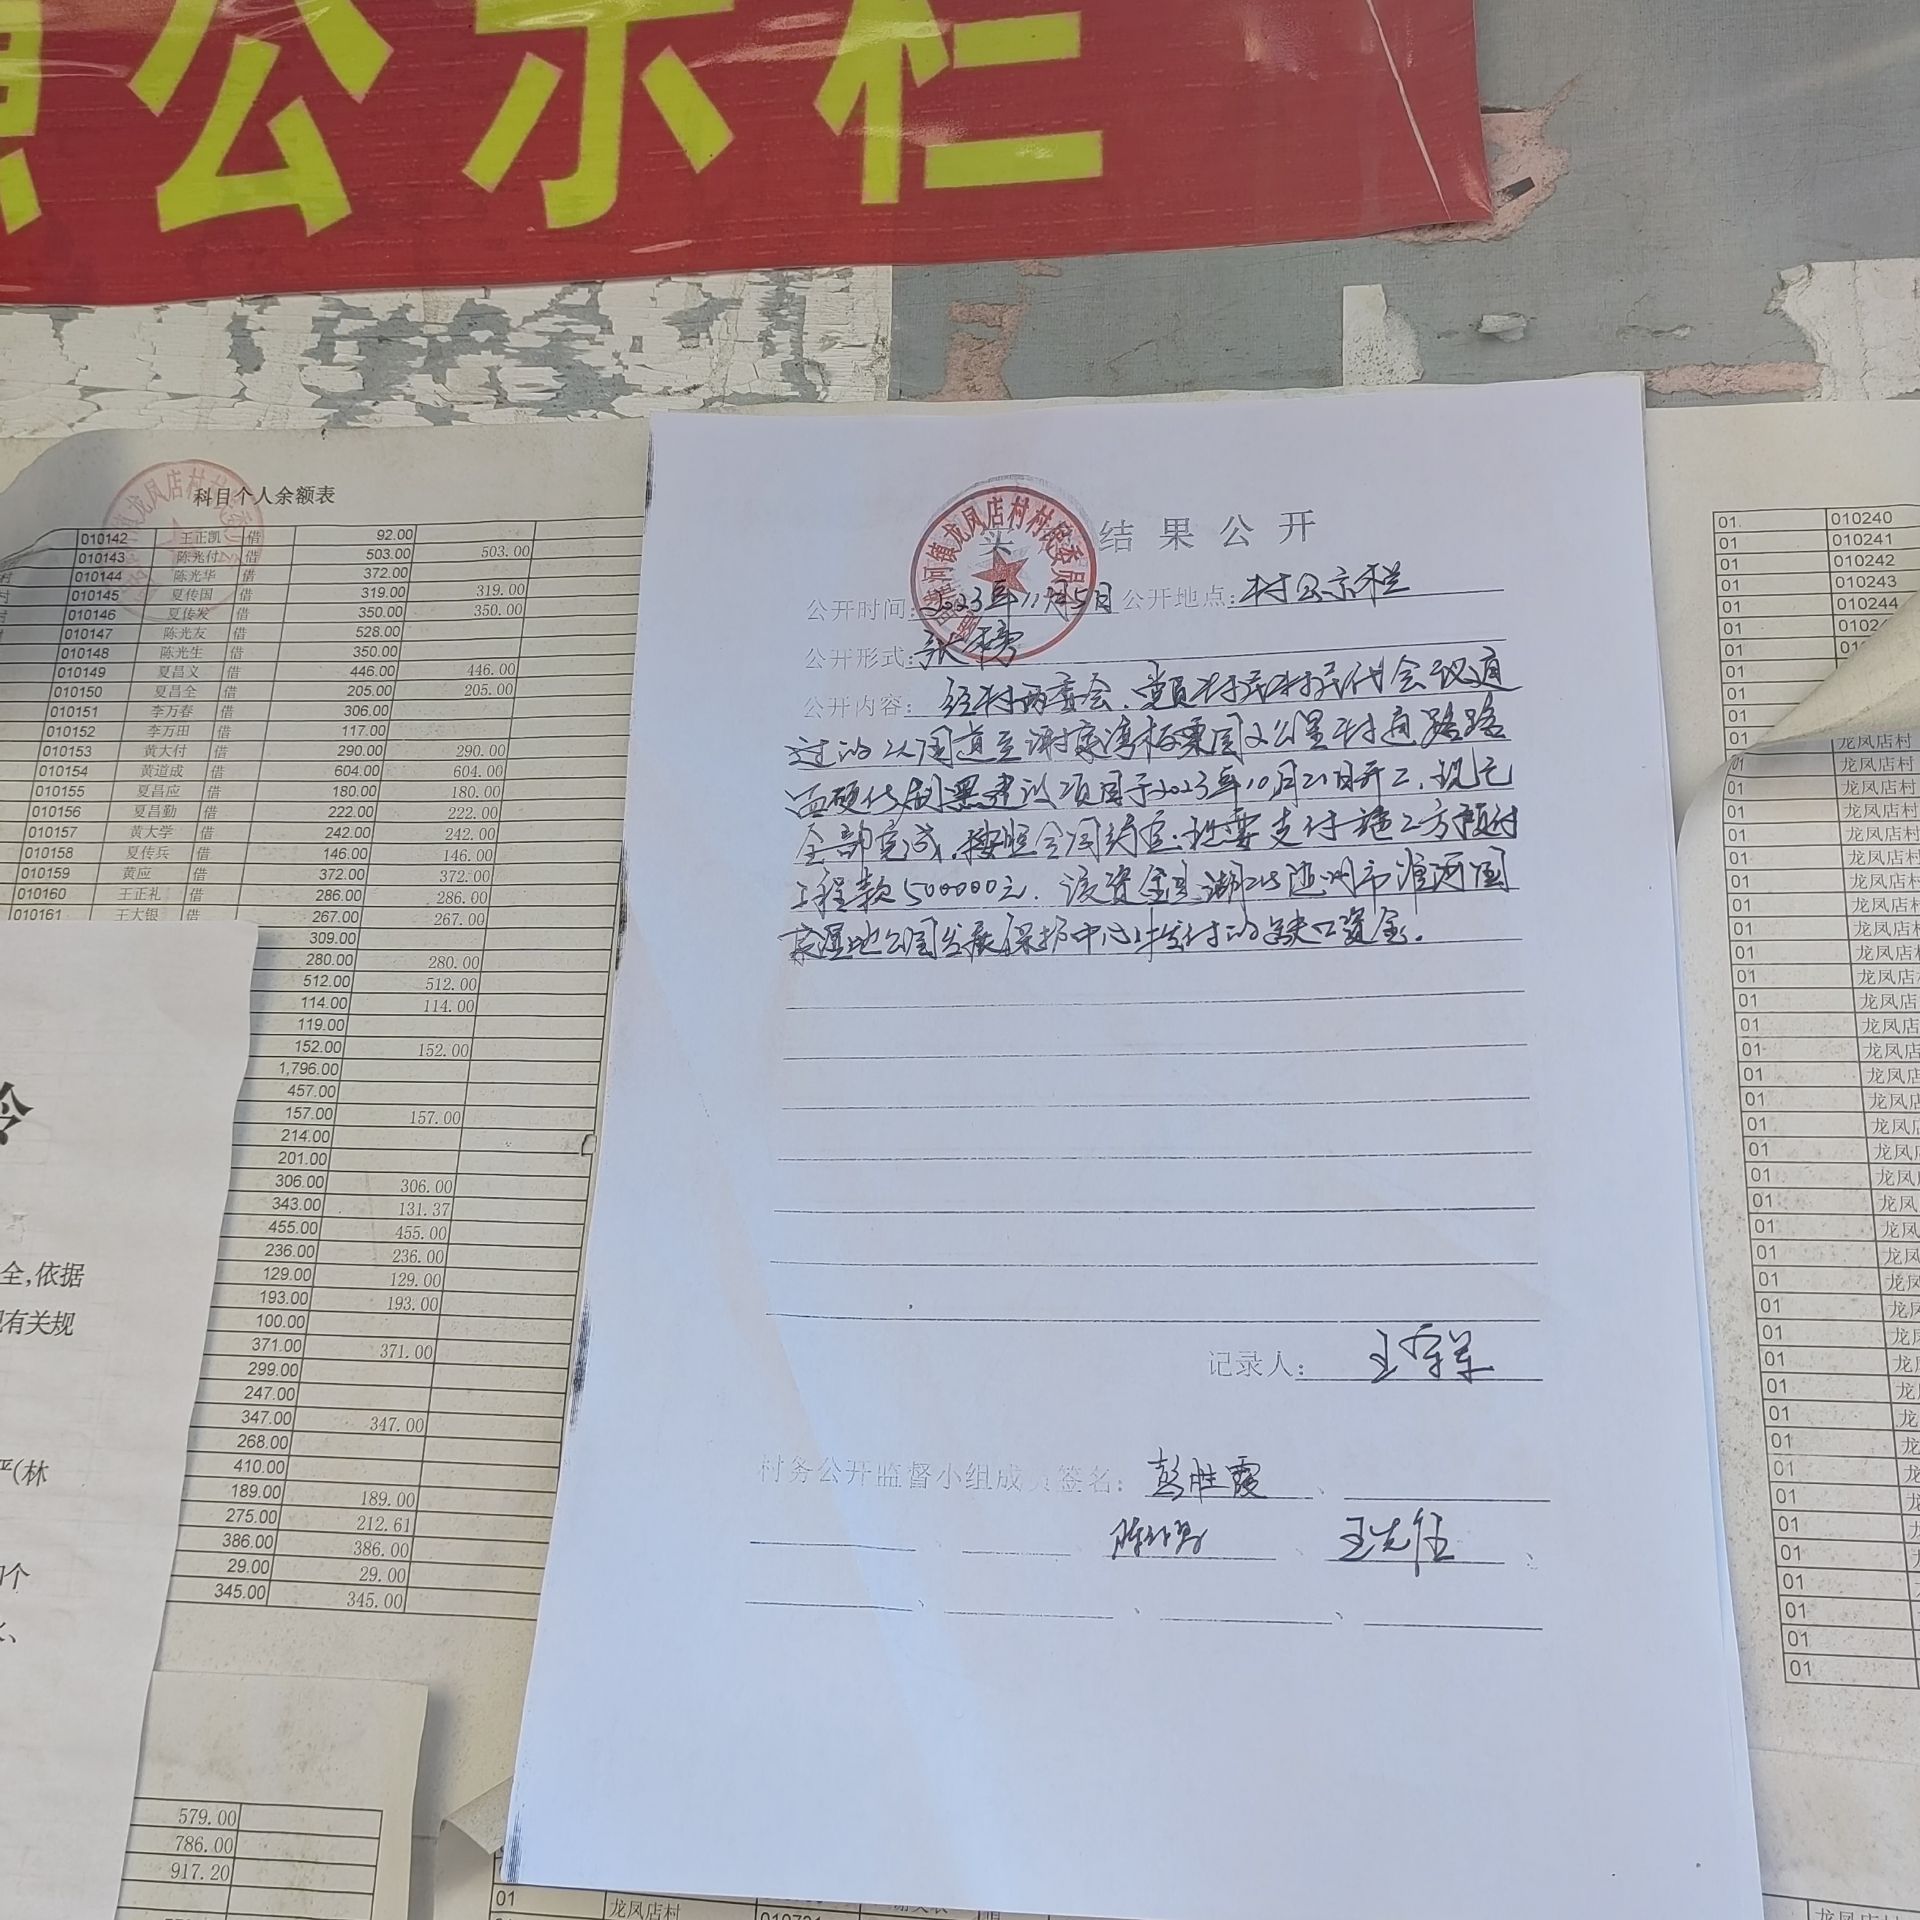 公示栏
科目个人余额表
010142 王正凯 借 92.00
010143 陈光付 借 503.00 503.00
010144 陈光华 借 372.00
010145 夏传国 借 319.00 319.00
010146 夏传发 借 350.00 350.00
010147 陈光友 借 528.00
010148 陈光生 借 350.00
010149 夏昌义 借 446.00 446.00
010150 夏昌全 借 205.00 205.00
010151 李万春 借 306.00
010152 李万田 借 117.00
010153 黄大付 借 290.00 290.00
010154 黄道成 借 604.00 604.00
010155 夏昌应 借 180.00 180.00
010156 夏昌勤 借 222.00 222.00
010157 黄大学 借 242.00 242.00
010158 夏传兵 借 146.00 146.00
010159 黄应 借 372.00 372.00
010160 王正礼 借 286.00 286.00
010161 王大银 借 267.00 267.00
309.00
280.00 280.00
512.00 512.00
114.00 114.00
119.00
152.00 152.00
1,796.00
457.00
157.00 157.00
214.00
201.00
306.00 306.00
343.00 131.37
455.00 455.00
236.00 236.00
129.00 129.00
193.00 193.00
100.00
371.00 371.00
299.00
247.00
347.00 347.00
268.00
410.00
189.00 189.00
275.00 212.61
386.00 386.00
29.00 29.00
345.00 345.00
全,依据
有关规
(林
个
579.00
786.00
917.20
镇龙凤店村村民委员会
结果公开
公开时间:2023年11月5日 公开地点:村公示栏
公开形式:张榜
公开内容: 经村两委会、党员村民村民代会议通
过的从国道至谢家湾板栗园2公里村道路路
面硬化刷黑建设项目于2023年10月21日开工,现已
全部完成,按照合同约定,批要支付施工方预付
工程款500000元,该资金是湖北随州市淮河国
家湿地公园发展保护中心拨付的缺口资金。
记录人:
村务公开监督小组成员签名: 彭胜霞
王先任
01 010240
01 010241
01 010242
01 010243
01 010244
01
01
01
01
01
01 龙凤店村
01 龙凤店村
01 龙凤店村
01 龙凤店村
01 龙凤店村
01 龙凤店村
01 龙凤店村
01 龙凤店村
01 龙凤店村
01 龙凤店
01 龙凤店
01 龙凤店
01 龙凤店
01 龙凤店
01 龙凤店
01 龙凤店
01 龙凤店
01 龙凤
01 龙凤
01 龙凤
01 龙凤
01 龙凤
01 龙凤
01 龙凤
01
01
01
01
01
01
01
01 龙凤店村
龙凤店村